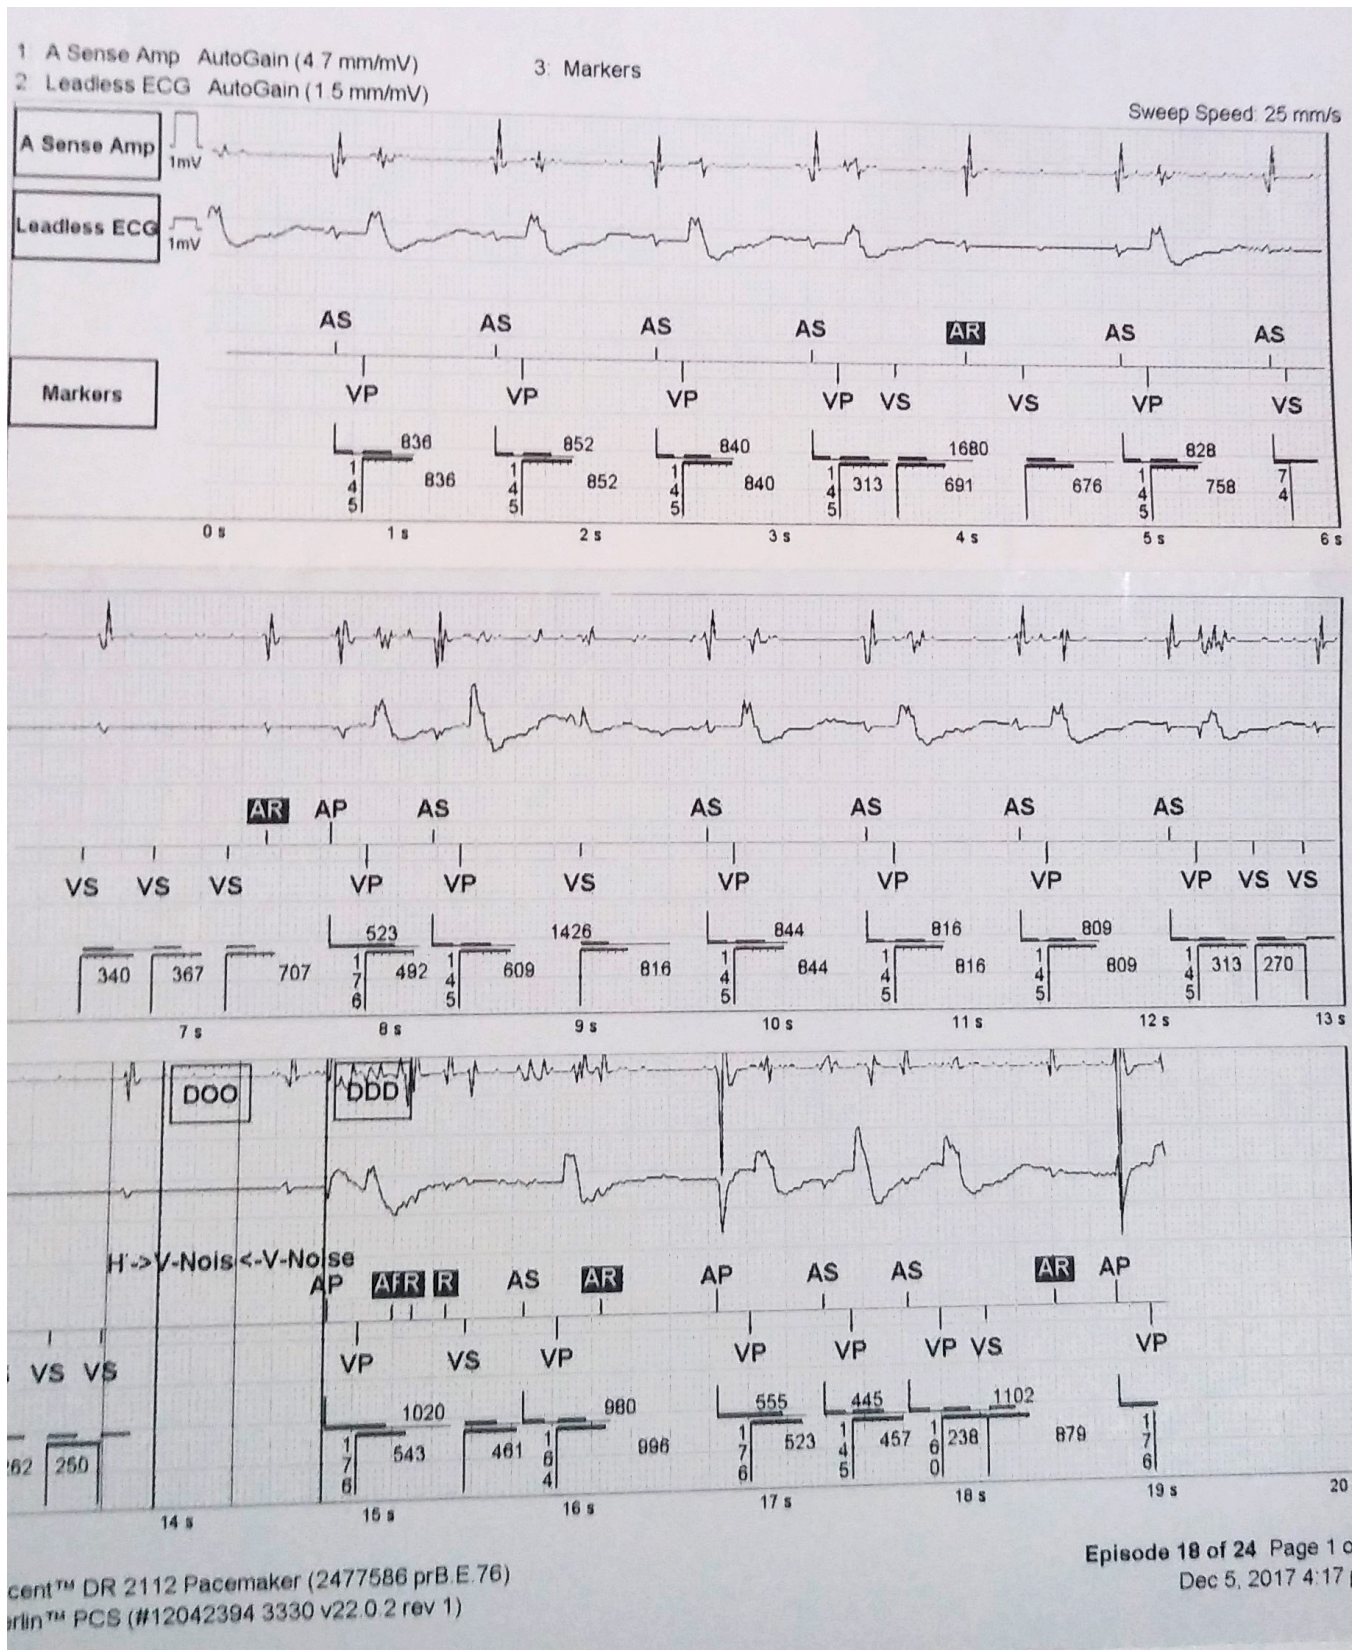 1: A Sense Amp AutoGain (4.7 mm/mV)
3: Markers
2 Leadless ECG AutoGain (1.5 mm/mV)
Sweep Speed: 25 mm/s
A Sense Amp
1mV
Leadless ECG
1mV
AS AS AS AS AR AS AS
Markers
VP VP VP VP VS VS VP VS
836 852 840 1680 828
145 836 145 852 145 840 145 313 691 676 145 758 74
0 s 1 s 2 s 3 s 4 s 5 s 6 s
AR AP AS AS AS AS AS
VS VS VS VP VP VS VP VP VP VP VS VS
523 1426 844 816 809
340 367 707 176 492 145 609 816 145 844 145 816 145 809 145 313 270
7 s 8 s 9 s 10 s 11 s 12 s 13 s
DOO DDD
H->V-Nois <-V-Noise
AP AR R AS AR AP AS AS AR AP
VS VS VP VS VP VP VP VP VS VP
1020 980 555 445 1102
62 250 176 543 461 164 996 176 523 145 457 160 238 879 176
14 s 15 s 16 s 17 s 18 s 19 s 20
Episode 18 of 24 Page 1 o
cent™ DR 2112 Pacemaker (2477586 prB.E.76)
Dec 5, 2017 4:17
erlin™ PCS (#12042394 3330 v22.0.2 rev 1)